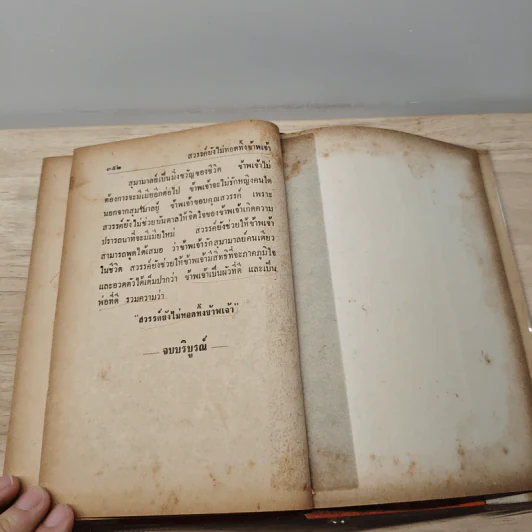 ๓๕๒
สวรรค์ยังไม่ทอดทิ้งข้าพเจ้า
สุมามาลย์เป็นมิ่งขวัญของชีวิต ข้าพเจ้าไม่
ต้องการจะมีเมียอีกต่อไป ข้าพเจ้าจะไม่รักหญิงคนใด
นอกจากสุมามาลย์ ข้าพเจ้าขอบคุณสวรรค์ เพราะ
สวรรค์ยังไม่ช่วยบันดาลให้จิตใจของข้าพเจ้าเกิดความ
ปรารถนาที่จะมีเมียใหม่ สวรรค์ยังช่วยให้ข้าพเจ้า
สามารถพูดได้เสมอ ว่าข้าพเจ้ารักสุมามาลย์คนเดียว
ในชีวิต สวรรค์ยังช่วยให้ข้าพเจ้ามีสิทธิที่จะภาคภูมิใจ
และอวดตัวได้เต็มปากว่า ข้าพเจ้าเป็นผัวที่ดี และเป็น
พ่อที่ดี รวมความว่า
"สวรรค์ยังไม่ทอดทิ้งข้าพเจ้า"
— จบบริบูรณ์ —